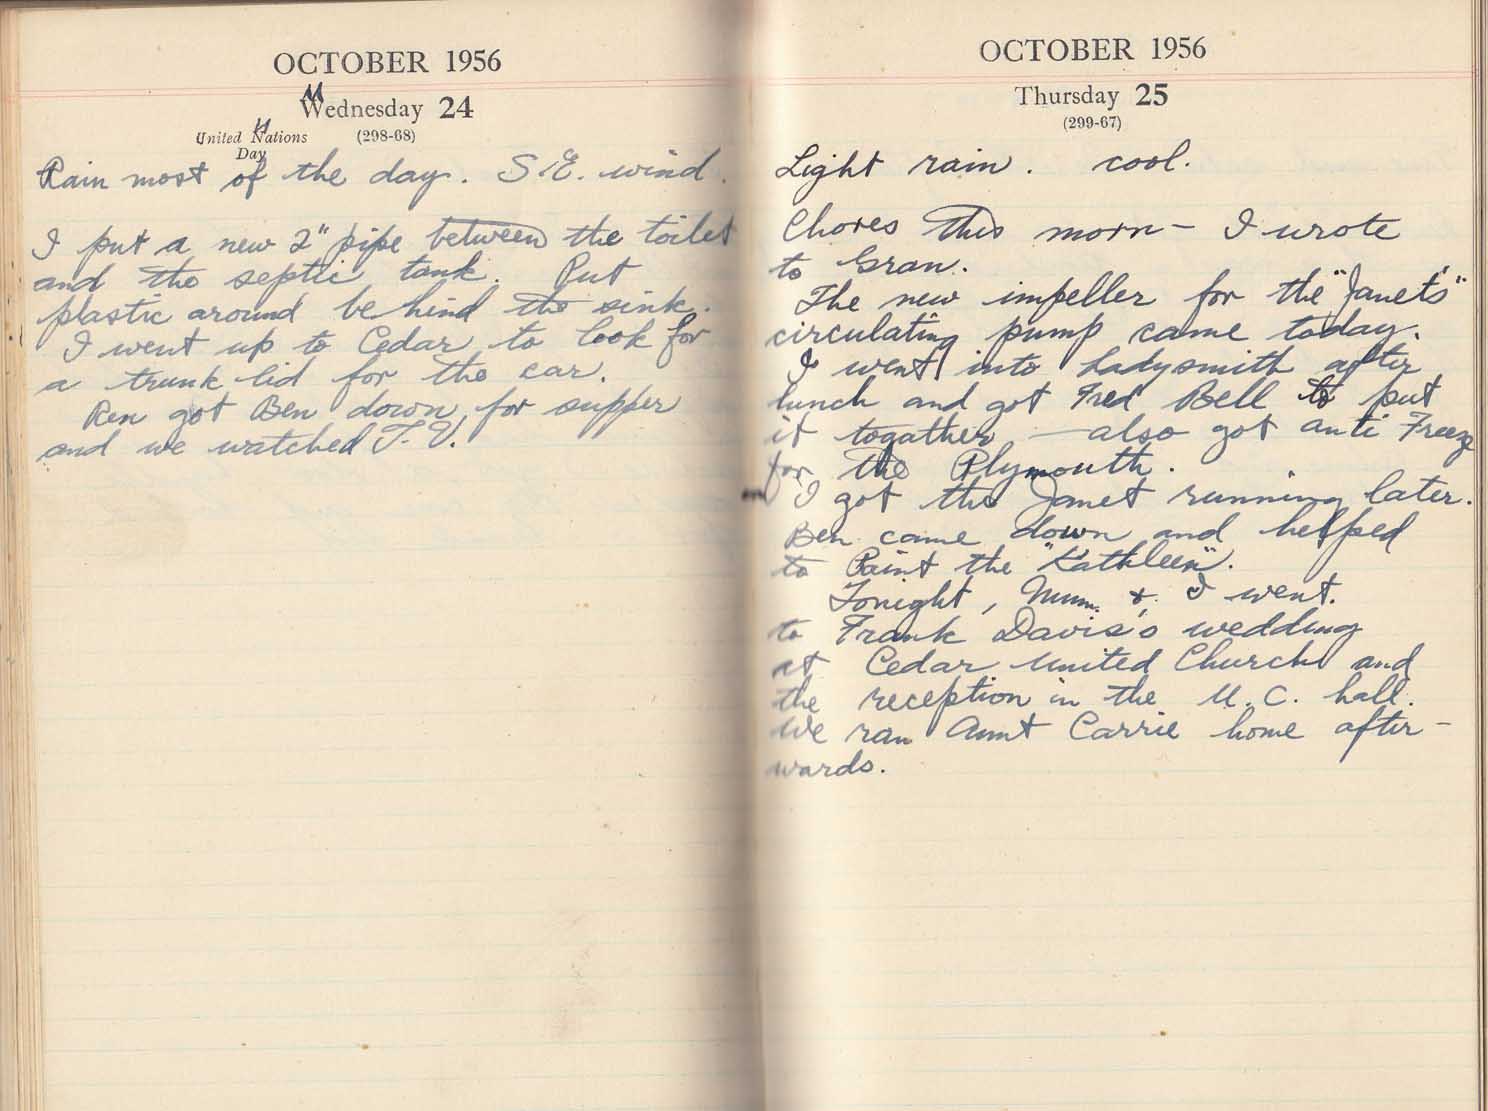 OCTOBER 1956
Wednesday 24
United Nations (298-68)
Day
Rain most of the day. S.E. wind.
I put a new 2" pipe between the toilet
and the septic tank. Put
plastic around behind the sink.
I went up to Cedar to look for
a trunk lid for the car.
Ren got Ben down for supper
and we watched T.V.
OCTOBER 1956
Thursday 25
(299-67)
Light rain. cool.
Chores this morn - I wrote
to Gran.
The new impeller for the "Janet's"
circulating pump came today.
I went into Ladysmith after
lunch and got Fred Bell to put
it togather - also got anti Freeze
for the Plymouth.
I got the Janet running later.
Ben came down and helped
to Paint the "Kathleen".
Tonight, Mum. & I went.
to Frank Davis's wedding
at Cedar United Church and
the reception in the U.C. hall.
We ran Aunt Carrie home after-
wards.